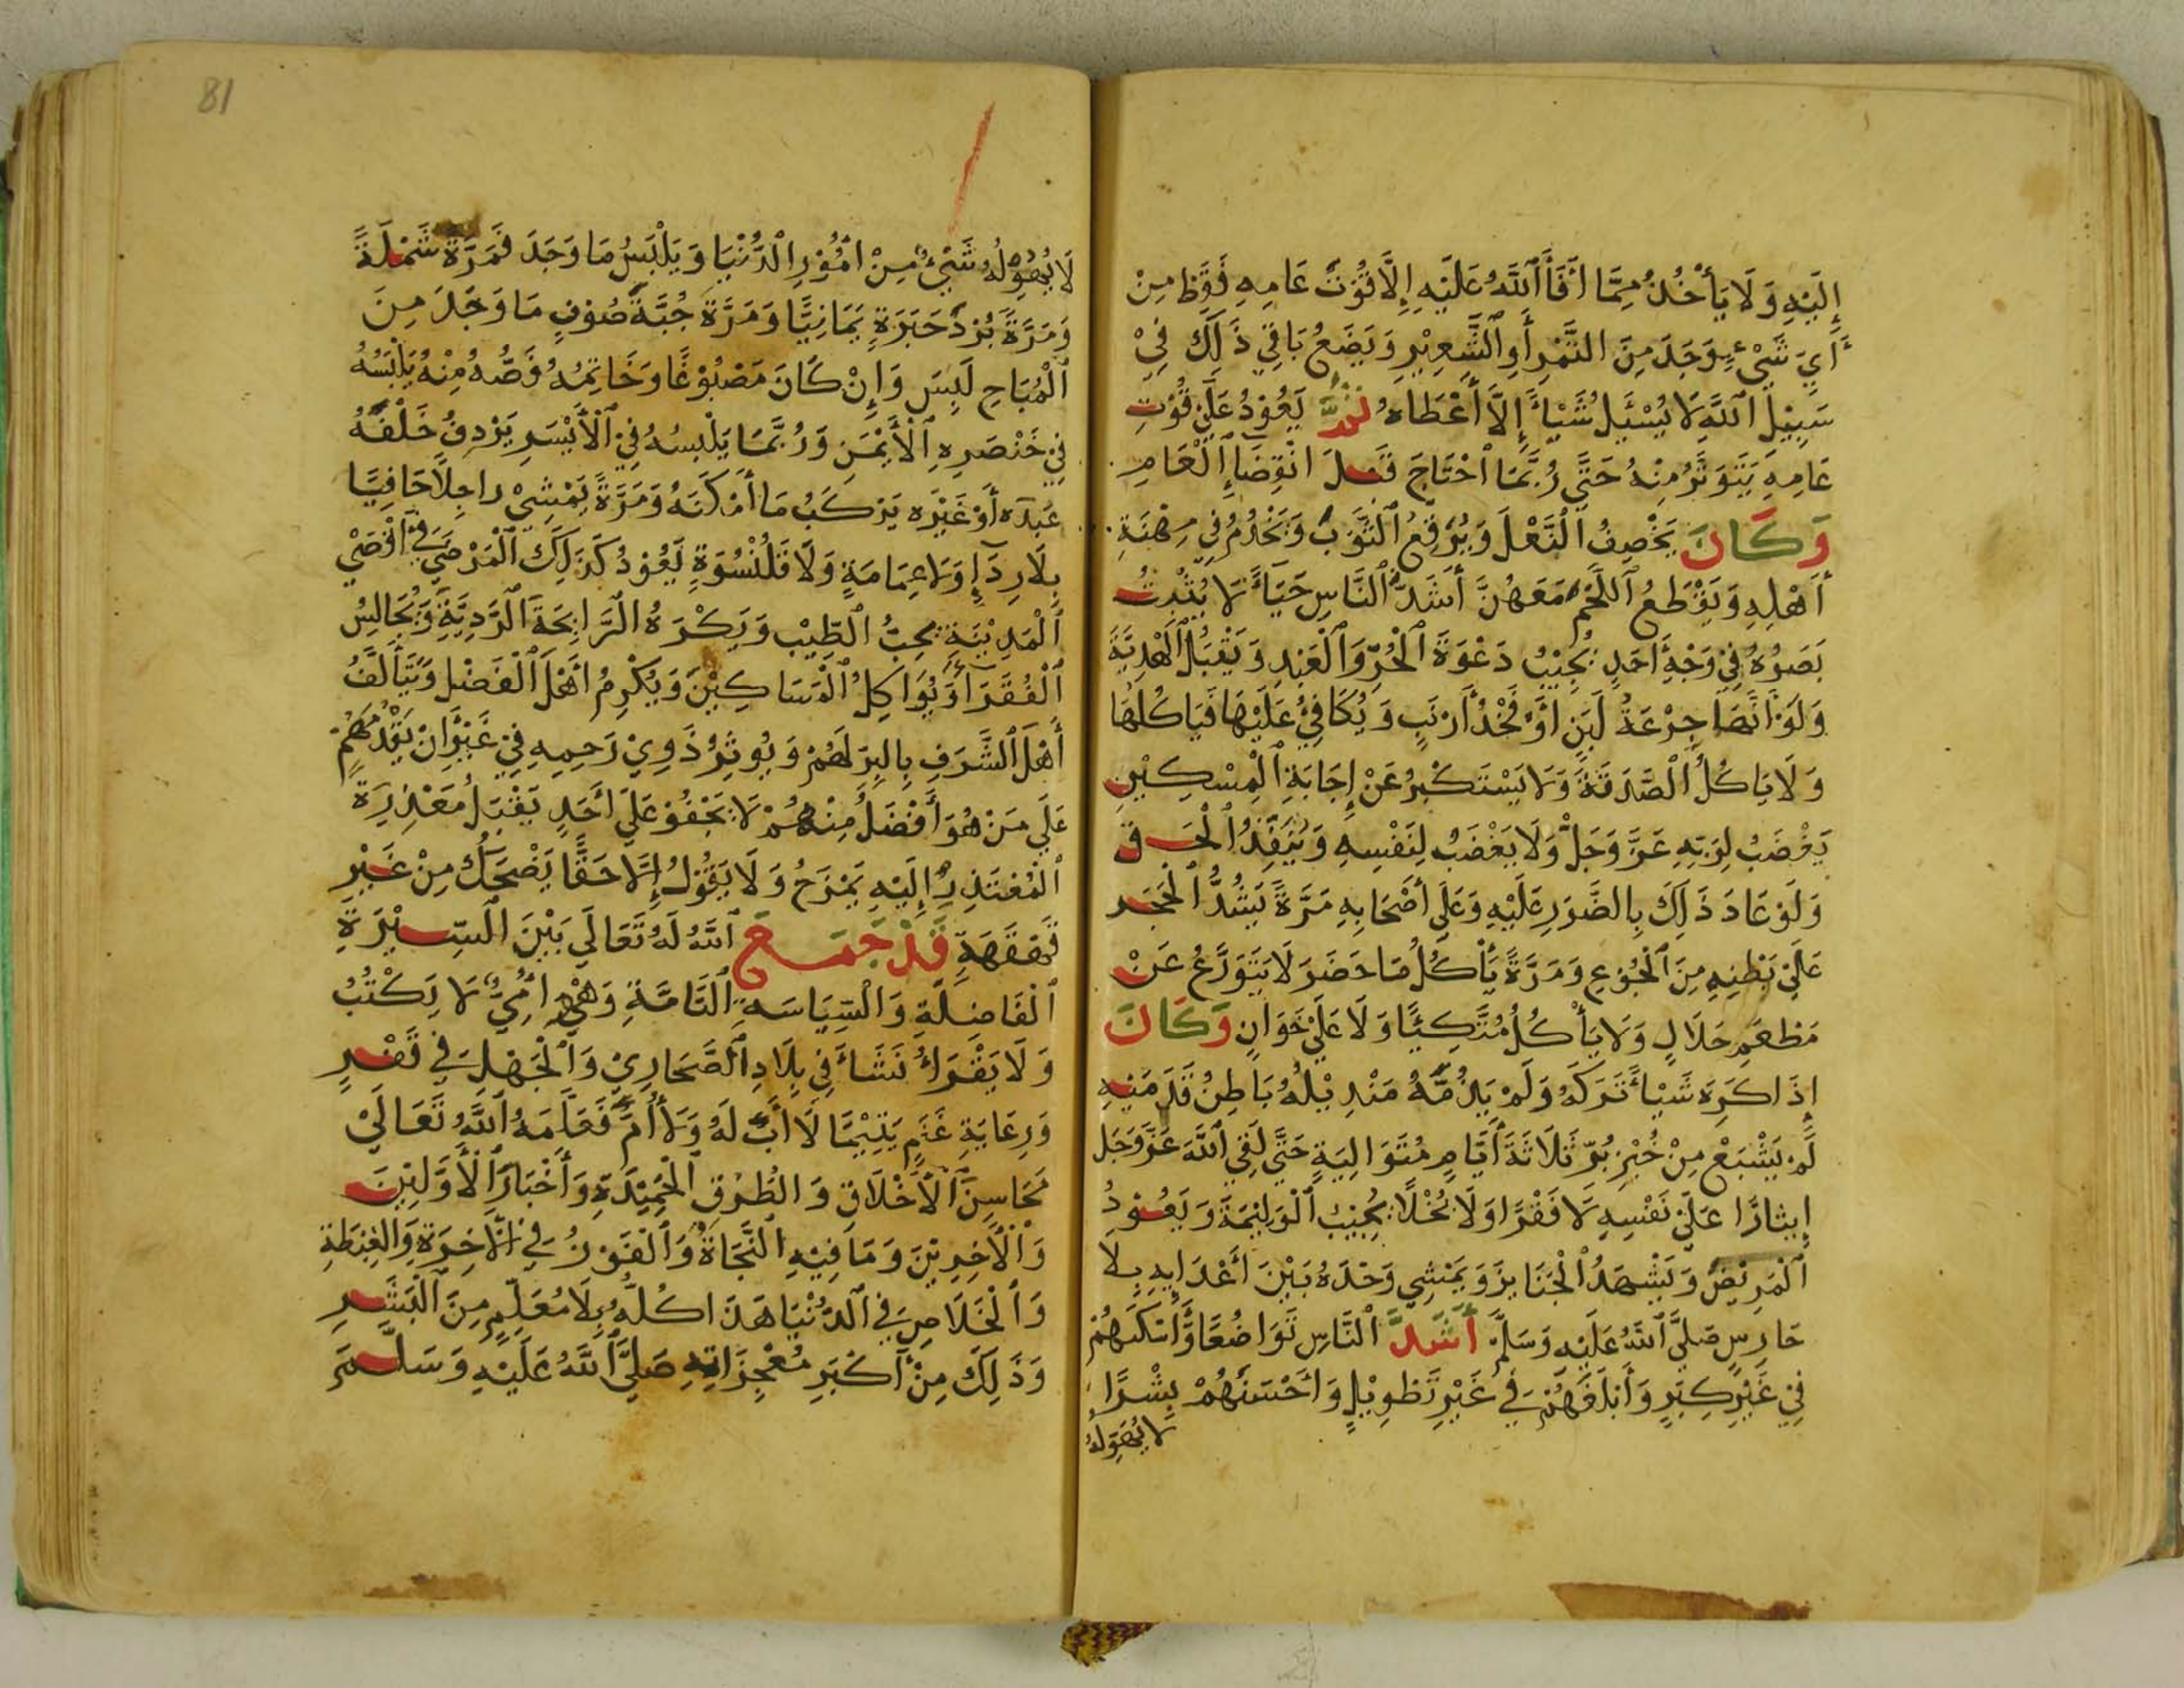 إِلَيْهِ وَلَا يَأْخُذُ مِمَّا أَفَاَ ٱللَّهُ عَلَيْهِ إِلَّا قُوْتَ عَامِهِ فَقَطْ مِنْ
أَيِّ شَيْءٍ وَجَدَ مِنَ التَّمْرِ أَوِ ٱلشَّعِيْرِ وَيَضَعُ بَاقِي ذَلِكَ فِيْ
سَبِيْلِ ٱللَّهِ لَا يُسْئَلُ شَيْأً إِلَّا أَعْطَاهُ ثُمَّ يَعُوْدُ عَلَيْ قُوْتِ
عَامِهِ يَتَوَثَّرُ مِنْهُ حَتَّي رُبَّمَا ٱحْتَاجَ قَبْلَ انْقِضَإِ ٱلْعَامِ
وَكَانَ يَخْصِفُ ٱلنَّعْلَ وَيُرَقِّعُ ٱلثَّوْبَ وَيَخْدُمُ فِيْ مِهْنَةِ
أَهْلِهِ وَيَقْطَعُ ٱللَّحْمَ مَعَهُنَّ أَشَدَّ ٱلنَّاسِ حَيَآءً لَا يُثْبِتُ
بَصَرُهُ فِيْ وَجْهِ أَحَدٍ يُجِيْبُ دَعْوَةَ ٱلْحُرِّ وَٱلْعَبْدِ وَيَقْبَلُ ٱلْهَدِيَّةَ
وَلَوْ أَنَّهَا جِرْعَةُ لَبَنٍ أَوْ فَخْذُ أَرْنَبٍ وَيُكَافِيُ عَلَيْهَا فَيَاكُلُهَا
وَلَا يَاكُلُ ٱلصَّدَقَةَ وَلَا يَسْتَكْبِرُ عَنْ إِجَابَةِ ٱلْمِسْكِيْنِ
يَغْضَبُ لِرَبِّهِ عَزَّ وَجَلَّ وَلَا يَغْضَبُ لِنَفْسِهِ وَيُنَفِّذُ ٱلْحَقَّ
وَلَوْ عَادَ ذَلِكَ بِالضَّرَرِ عَلَيْهِ وَعَلَي أَصْحَابِهِ مَرَّةً يَشُدُّ ٱلْحَجَرَ
عَلَيْ بَطْنِهِ مِنَ ٱلْجُوْعِ وَمَرَّةً يَأْكُلُ مَا حَضَرَ لَا يَتَوَرَّعُ عَنْ
مَطْعَمٍ حَلَالٍ وَلَا يَأْكُلُ مُتَّكِئًا وَلَا عَلَيْ خَوَانٍ وَكَانَ
إِذَا كَرِهَ شَيْأً تَرَكَهُ وَلَمْ يَذُمَّهُ مَنْدِيْلُهُ بَاطِنُ قَدَمَيْهِ
لَمْ يَشْبَعْ مِنْ خُبْزِ بُرٍّ ثَلَاثَةَ أَيَّامٍ مُتَوَالِيَةٍ حَتَّي لَقِيَ ٱللَّهَ عَزَّ وَجَلَّ
إِيثَارًا عَلَيْ نَفْسِهِ لَا فَقْرًا وَلَا بُخْلًا يُجِيْبُ ٱلْوَلِيْمَةَ وَيَعُوْدُ
ٱلْمَرِيْضَ وَيَشْهَدُ ٱلْجَنَايِزَ وَيَمْشِي وَحْدَهُ بَيْنَ أَعْدَايِهِ بِلَا
حَارِسٍ صَلَّيَ ٱللَّهُ عَلَيْهِ وَسَلَّمَ أَشَدَّ ٱلنَّاسِ تَوَاضُعًا وَأَسْكَنَهُمْ
فِيْ غَيْرِ كِبَرٍ وَأَبْلَغَهُمْ فِي غَيْرِ تَطْوِيْلٍ وَأَحْسَنَهُمْ بِشْرًا
لَا يَهُوْلُهُ
81
لَا يَهُوْلُهُ شَيْءٌ مِنْ أُمُوْرِ ٱلدُّنْيَا وَيَلْبَسُ مَا وَجَدَ فَمَرَّةً شَمْلَةً
وَمَرَّةً بُرْدَ حَبَرَةٍ يَمَانِيًّا وَمَرَّةً جُبَّةَ صُوْفٍ مَا وَجَدَ مِنَ
ٱلْمُبَاحِ لَبِسَ وَإِنْ كَانَ مَصْبُوْغًا وَخَاتِمُهُ فَصُّهُ مِنْهُ يَلْبَسُهُ
فِيْ خَنْصَرِهِ ٱلْأَيْمَنِ وَرُبَّمَا يَلْبسُهُ فِيْ ٱلْأَيْسَرِ يَرْدِفُ خَلْفَهُ
عَبْدَه أَوْ غَيْرَه يَرْكَبُ مَا أَمْكَنَهُ وَمَرَّةً يَمْشِيْ راجِلًا حَافِيًا
بِلَا رِدَإٍ وَلَا عِمَامَةٍ وَلَا قَلُنْسُوَةٍ يَعُوْدُ كَذَلِكَ ٱلْمَرْضَيَ فِي أَقْصَيْ
ٱلْمَدِيْنَةِ يُحِبُّ ٱلطِّيْبَ وَيَكْرَهُ ٱلرَّايِحَةَ ٱلرَّدِيَّةَ وَيُجَالِسُ
ٱلْفُقَرَآءَ وَيُوَاكِلُ ٱلْمَسَاكِيْنَ وَيُكْرِمُ أَهْلَ ٱلْفَضْلِ وَيَتَأَلَّفُ
أَهْلَ ٱلشَّرَفِ بِالبِرِّ لَهُمْ وَيُوثِرُ ذَوِيْ رَحِمِهِ فِيْ غَيْرِ أَنْ يُقَدِّمَهُمْ
عَلَي مَنْ هُوَ أَفْضَلُ مِنْهُمْ لَا يَجْفُوْ عَلَي أَحَدٍ يَقْبَلُ مَعْذِرَةَ
ٱلْمُعْتَذِرِ إِلَيْهِ يَمْزَحُ وَلَا يَقُوْلُ إِلَّا حَقًّا يَضْحَكُ مِنْ غَيْرِ
قَهْقَهَةٍ قَدْ جَمَعَ ٱللَّهُ لَهُ تَعَالَي بَيْنَ ٱلسِّيْرَةِ
ٱلْفَاضِلَةِ وَالْسِّيَاسَةِ ٱلتَّامَّةِ وَهْوَ أُمِّيٌ لَا يَكْتُبُ
وَلَا يَقْرَأُ نَشَأَ فِي بِلَادِ ٱلصَّحَارِيْ وَٱلْجَهْلِ فِي فَقْرٍ
وَرِعَايَةِ غَنَمٍ يَتِيْمًا لَا أَبَ لَهُ وَلَا أُمَّ فَعَلَّمَهُ ٱللَّهُ تَعَالَيْ
مَحَاسِنَ ٱلْأَخْلَاقِ وَالطُّرُقِ ٱلْحَمِيْدَةِ وَأَخْبَارَ ٱلْأَوَّلِيْنَ
وَٱلْأَخِرِيْنَ وَمَا فِيْهِ ٱلنَّجَاةُ وَٱلْفَوْزُ فِي ٱلْأَخِرَةِ وَالغِبْطَةِ
وَٱلْخَلَاصِ فِي ٱلدُّنْيَا هَذَا كُلُّهُ بِلَا مُعَلِّمٍ مِنَ ٱلْبَشَرِ
وَذَلِكَ مِنْ أَكْبَرِ مُعْجِزَاتِهِ صَلَّيَ ٱللَّهُ عَلَيْهِ وَسَلَّمَ